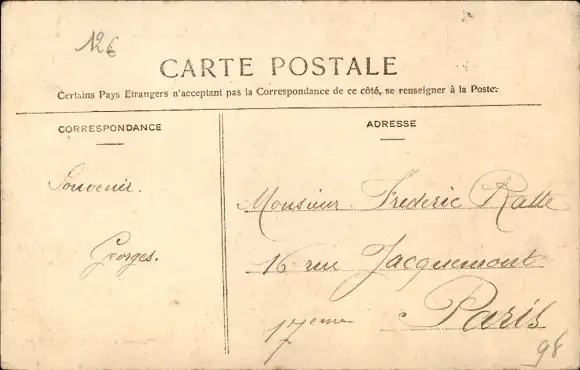 12€
CARTE POSTALE
Certains Pays Etrangers n'acceptant pas la Correspondance de ce côté, se renseigner à la Poste.
CORRESPONDANCE
Souvenir.
Georges.
ADRESSE
Monsieur Frederic Ratte
16 rue Jacquemont
Paris
17eme
98